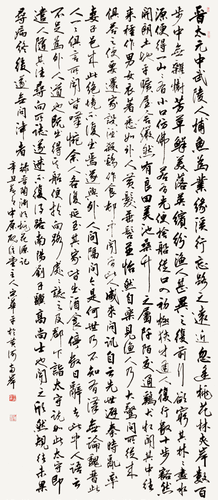 晉太元中武陵人捕魚為業緣溪行忘路之遠近忽逢桃花林夾岸數百
步中無雜樹芳草鮮美落英繽紛漁人甚異之復前行欲窮其林林盡水
源便得一山山有小口仿佛若有光便舍船從口入初極狹才通人復行數十步豁然
開朗土地平曠屋舍儼然有良田美池桑竹之屬阡陌交通雞犬相聞其中往
來種作男女衣著悉如外人黃髮垂髫並怡然自樂見漁人乃大驚問所
從來具答之便要還家設酒殺雞作食村中聞有此人咸來問訊自云先世避秦時亂率
妻子邑人來此絕境不復出焉遂與外人間隔問今是何世乃不知有漢無論魏晉此
人一一為具言所聞皆歎惋餘人各復延至其家皆出酒食停數日辭去此中人語云
不足為外人道也既出得其船便扶向路處處誌之及郡下詣太守說如此太守即
遣人隨其往尋向所誌遂迷不復得路南陽劉子驥高尚士也聞之欣然規往未果
尋病終後遂無問津者
陶淵明桃花源記